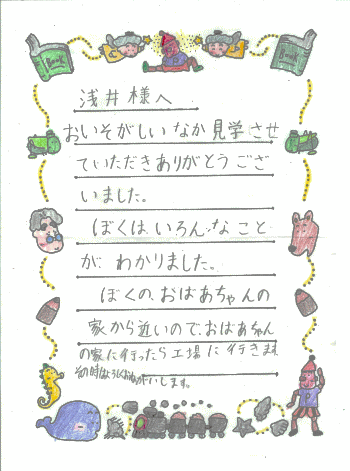 Book
Book
浅井様へ
おいそがしいなか見学させ
ていただきありがとうござ
いました。
ぼくは、いろんなこと
が、わかりました。
ぼくの、おばあちゃんの
家から近いので、おばあちゃん
の家に行ったら工場に行きます。
その時はよろしくおねがいします。